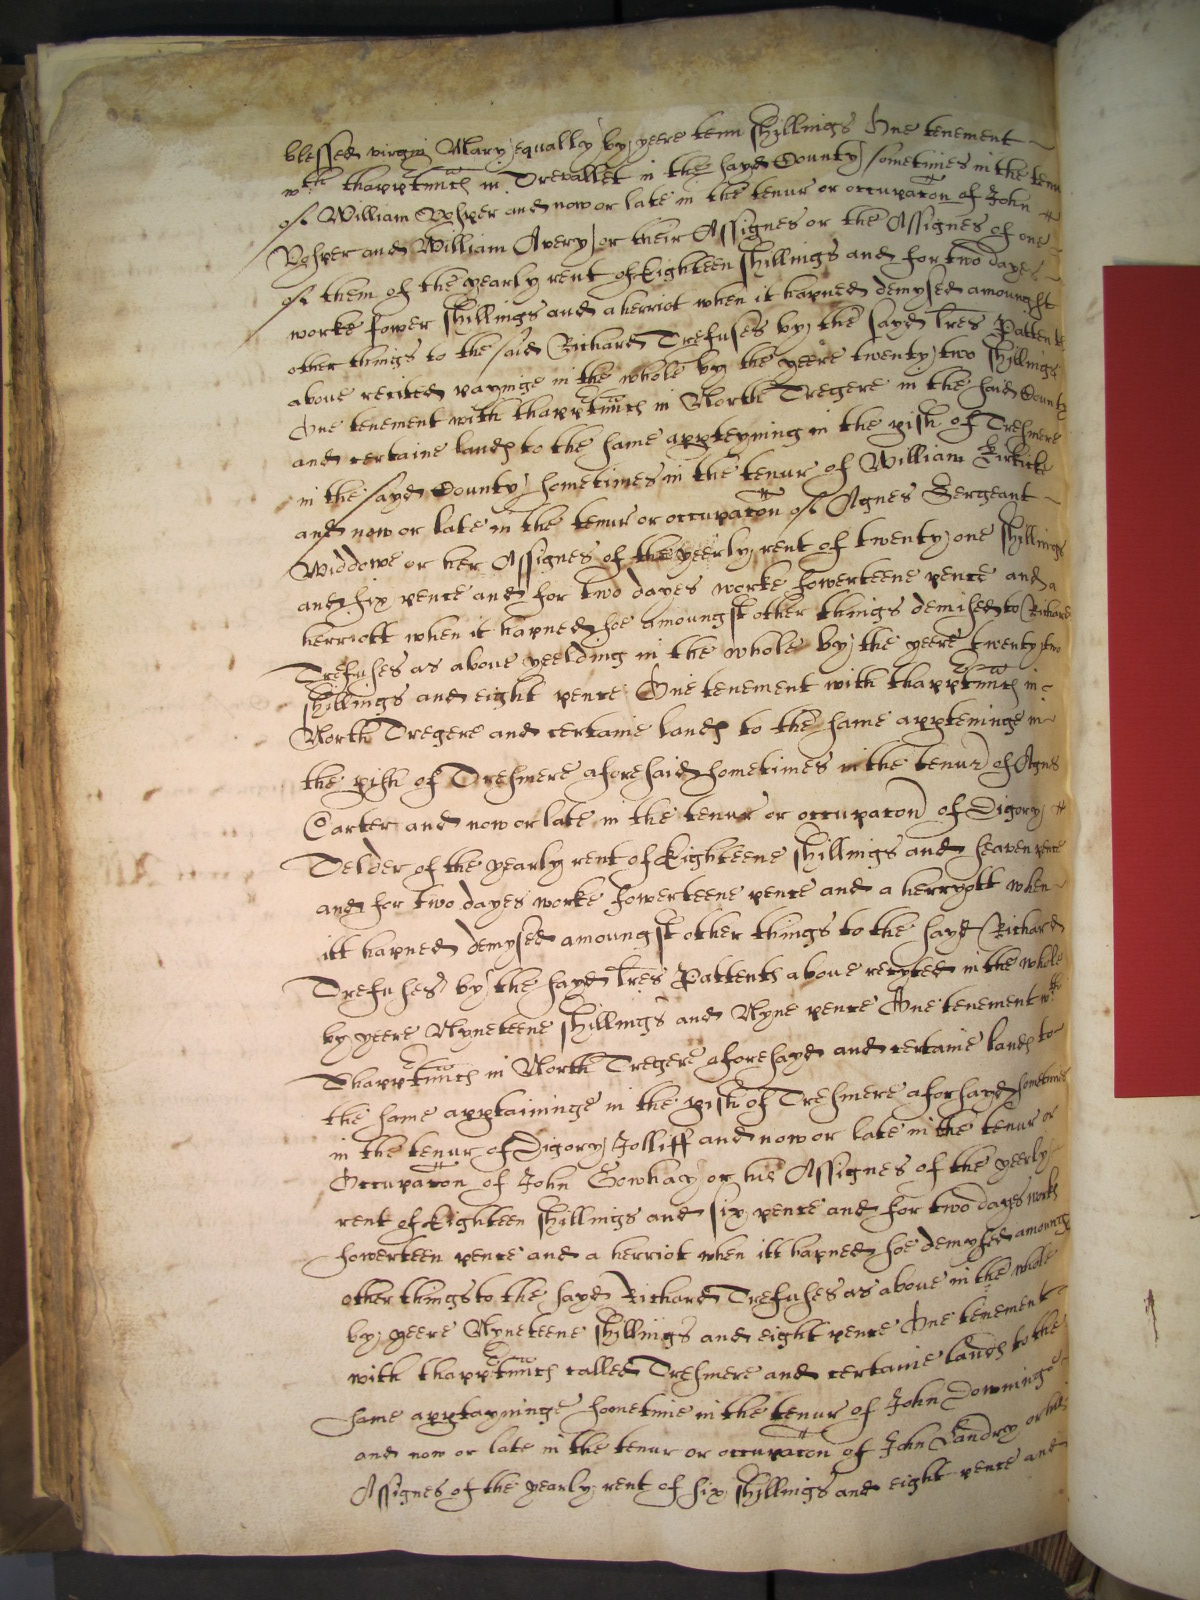 blessed virgin Mary equally by yeere tenn shillings One tenement
wth thapptnnces in Trevallet in the sayd County sometimes in the tenur
of William and now or late in the tenur or occupacon of John
and William Avery or their Assignes or the Assignes of one
of them of the yearly rent of Eighteen shillings and for two dayes
worke fower shillings and a herriot when it hapned demysed amoungst
other things to the said Richard Trefuses by the sayd lres Pattents
above recited payinge in the whole by the yeere twenty two shillings
One tenement with thapptnnces in North Tregere in the said County
and certaine lands to the same appteyning in the pish of Tresmere
in the sayd County sometimes in the tenur of William
and now or late in the tenur or occupacon of Agnes Sergeant
Widdowe or her Assignes of the yeerly rent of twenty one shillings
and six pence and for two dayes worke fowerteene pence and a
herriott when it hapned soe amoungst other things demised to Richard
Trefuses as above yeelding in the whole by the yeere twenty two
shillings and eight pence One tenement with thapptnnces in
North Tregere and certaine lands to the same appteninge in
the pish of Tresmere aforesaid sometimes in the tenur of Agnes
Carter and now or late in the tenur or occupacon of Digory
Telder of the yearly rent of Eighteene shillings and seaven pence
and for two dayes worke fowerteene pence and a herryott when
itt hapned demysed amoungst other things to the sayd Richard
Trefuses by the sayd lres Pattents above recyted in the whole
by yeere Nyneteene shillings and Nyne pence One tenement wth
Thapptnnces in North Tregere aforesayd and certaine lands to
the same apptaininge in the pish of Tresmere aforsayd sometimes
in the tenur of Digory Jolliff and now or late in the tenur or
Occupacon of John Gowhay or his Assignes of the yeerly
rent of Eighteen shillings and six pence and for two dayes works
fowerteen pence and a herriot when itt hapned soe demysed amoungst
other things to the sayd Richard Trefuses as above in the whole
by yeere Nyneteene shillings and eight pence One tenement
with thapptnnces called Tresmere and certaine lands to the
same apptayninge sometime in the tenur of John Downinge
and now or late in the tenur or occupacon of John Landry or his
Assignes of the yearly rent of six shillings and eight pence and